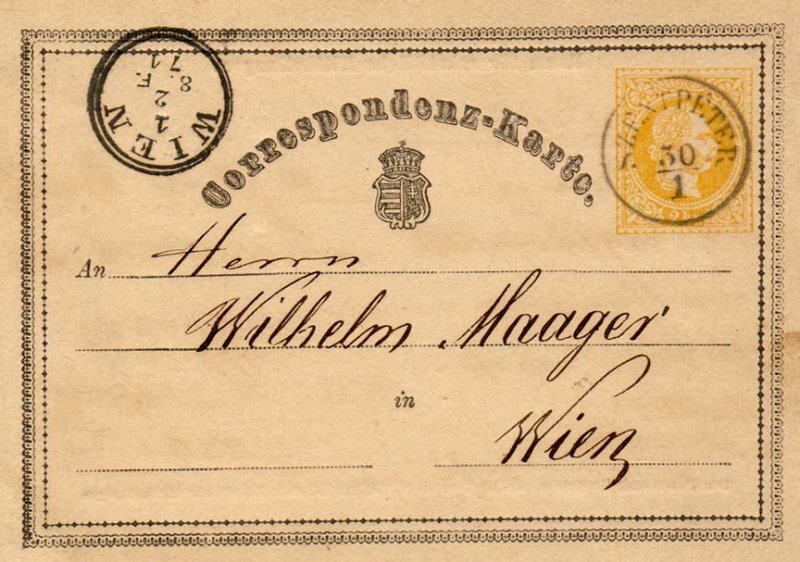 WIEN
1
2 F.
8. 71
Correspondenz-Karte.
SZENTPÉTER
30
1
An Herrn
Wilhelm Maager
in
Wien